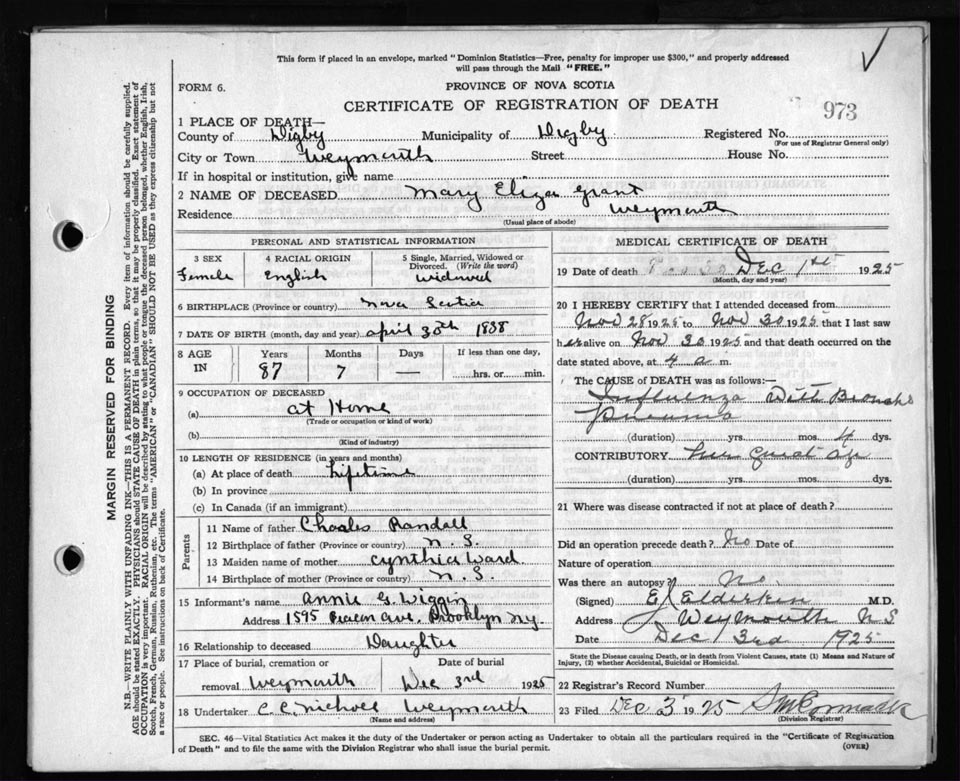 This form if placed in an envelope, marked "Dominion Statistics—Free, penalty for improper use $300," and properly addressed
will pass through the Mail "FREE."
FORM 6.
PROVINCE OF NOVA SCOTIA
CERTIFICATE OF REGISTRATION OF DEATH
973
1 PLACE OF DEATH—
County of Digby Municipality of Digby Registered No.
(For use of Registrar General only)
City or Town Weymouth Street House No.
If in hospital or institution, give name
2 NAME OF DECEASED Mary Eliza Grant
Residence Weymouth
(Usual place of abode)
PERSONAL AND STATISTICAL INFORMATION
3 SEX
Female
4 RACIAL ORIGIN
English
5 Single, Married, Widowed or
Divorced. (Write the word)
widowed
6 BIRTHPLACE (Province or country) Nova Scotia
7 DATE OF BIRTH (month, day and year) April 30th 1838
8 AGE
IN
Years
87
Months
7
Days
—
If less than one day,
hrs. or min.
9 OCCUPATION OF DECEASED
(a) at Home
(Trade or occupation or kind of work)
(b)
(Kind of industry)
10 LENGTH OF RESIDENCE (in years and months)
(a) At place of death Lifetime
(b) In province
(c) In Canada (if an immigrant)
Parents
11 Name of father Charles Randall
12 Birthplace of father (Province or country) N.S.
13 Maiden name of mother Cynthia Ward
14 Birthplace of mother (Province or country) N.S.
15 Informant's name Annie G. Wiggin
Address 1595 Ave. Brooklyn N.Y.
16 Relationship to deceased Daughter
17 Place of burial, cremation or
removal Weymouth
Date of burial
Dec 3rd 1925
18 Undertaker C. C. Nichols Weymouth
(Name and address)
MEDICAL CERTIFICATE OF DEATH
19 Date of death Dec 1st 1925
(Month, day and year)
20 I HEREBY CERTIFY that I attended deceased from
Nov 28 1925 to Nov 30 1925 that I last saw
her alive on Nov 30 1925 and that death occurred on the
date stated above, at 4 a m.
The CAUSE of DEATH was as follows:—
Influenza with Broncho
Pneumo
(duration) yrs. mos. 4 dys.
CONTRIBUTORY
(duration) yrs. mos. dys.
21 Where was disease contracted if not at place of death?
Did an operation precede death? No Date of
Nature of operation
Was there an autopsy? No.
(Signed) E. Elderkin M.D.
Address Weymouth N S
Date Dec 3rd 1925
State the Disease causing Death, or in death from Violent Causes, state (1) Means and Nature of
Injury, (2) whether Accidental, Suicidal or Homicidal.
22 Registrar's Record Number
23 Filed Dec 3 1925 McCormack
(Division Registrar)
SEC. 46—Vital Statistics Act makes it the duty of the Undertaker or person acting as Undertaker to obtain all the particulars required in the "Certificate of Registration
of Death" and to file the same with the Division Registrar who shall issue the burial permit.
(OVER)
MARGIN RESERVED FOR BINDING
N.B.—WRITE PLAINLY WITH UNFADING INK—THIS IS A PERMANENT RECORD. Every item of information should be carefully supplied.
AGE should be stated EXACTLY. PHYSICIANS should STATE CAUSE OF DEATH in plain terms, so that it may be properly classified. Exact statement of
OCCUPATION is very important. RACIAL ORIGIN will be described by stating to what people or tongue the deceased person belonged, whether English, Irish,
Scotch, French, German, Russian, Ruthenian, etc. The terms "AMERICAN" or "CANADIAN" SHOULD NOT BE USED as they express citizenship but not
a race or people. See instructions on back of Certificate.